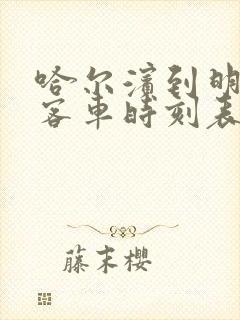 哈尔滨到明
客车时刻表
藤末樱